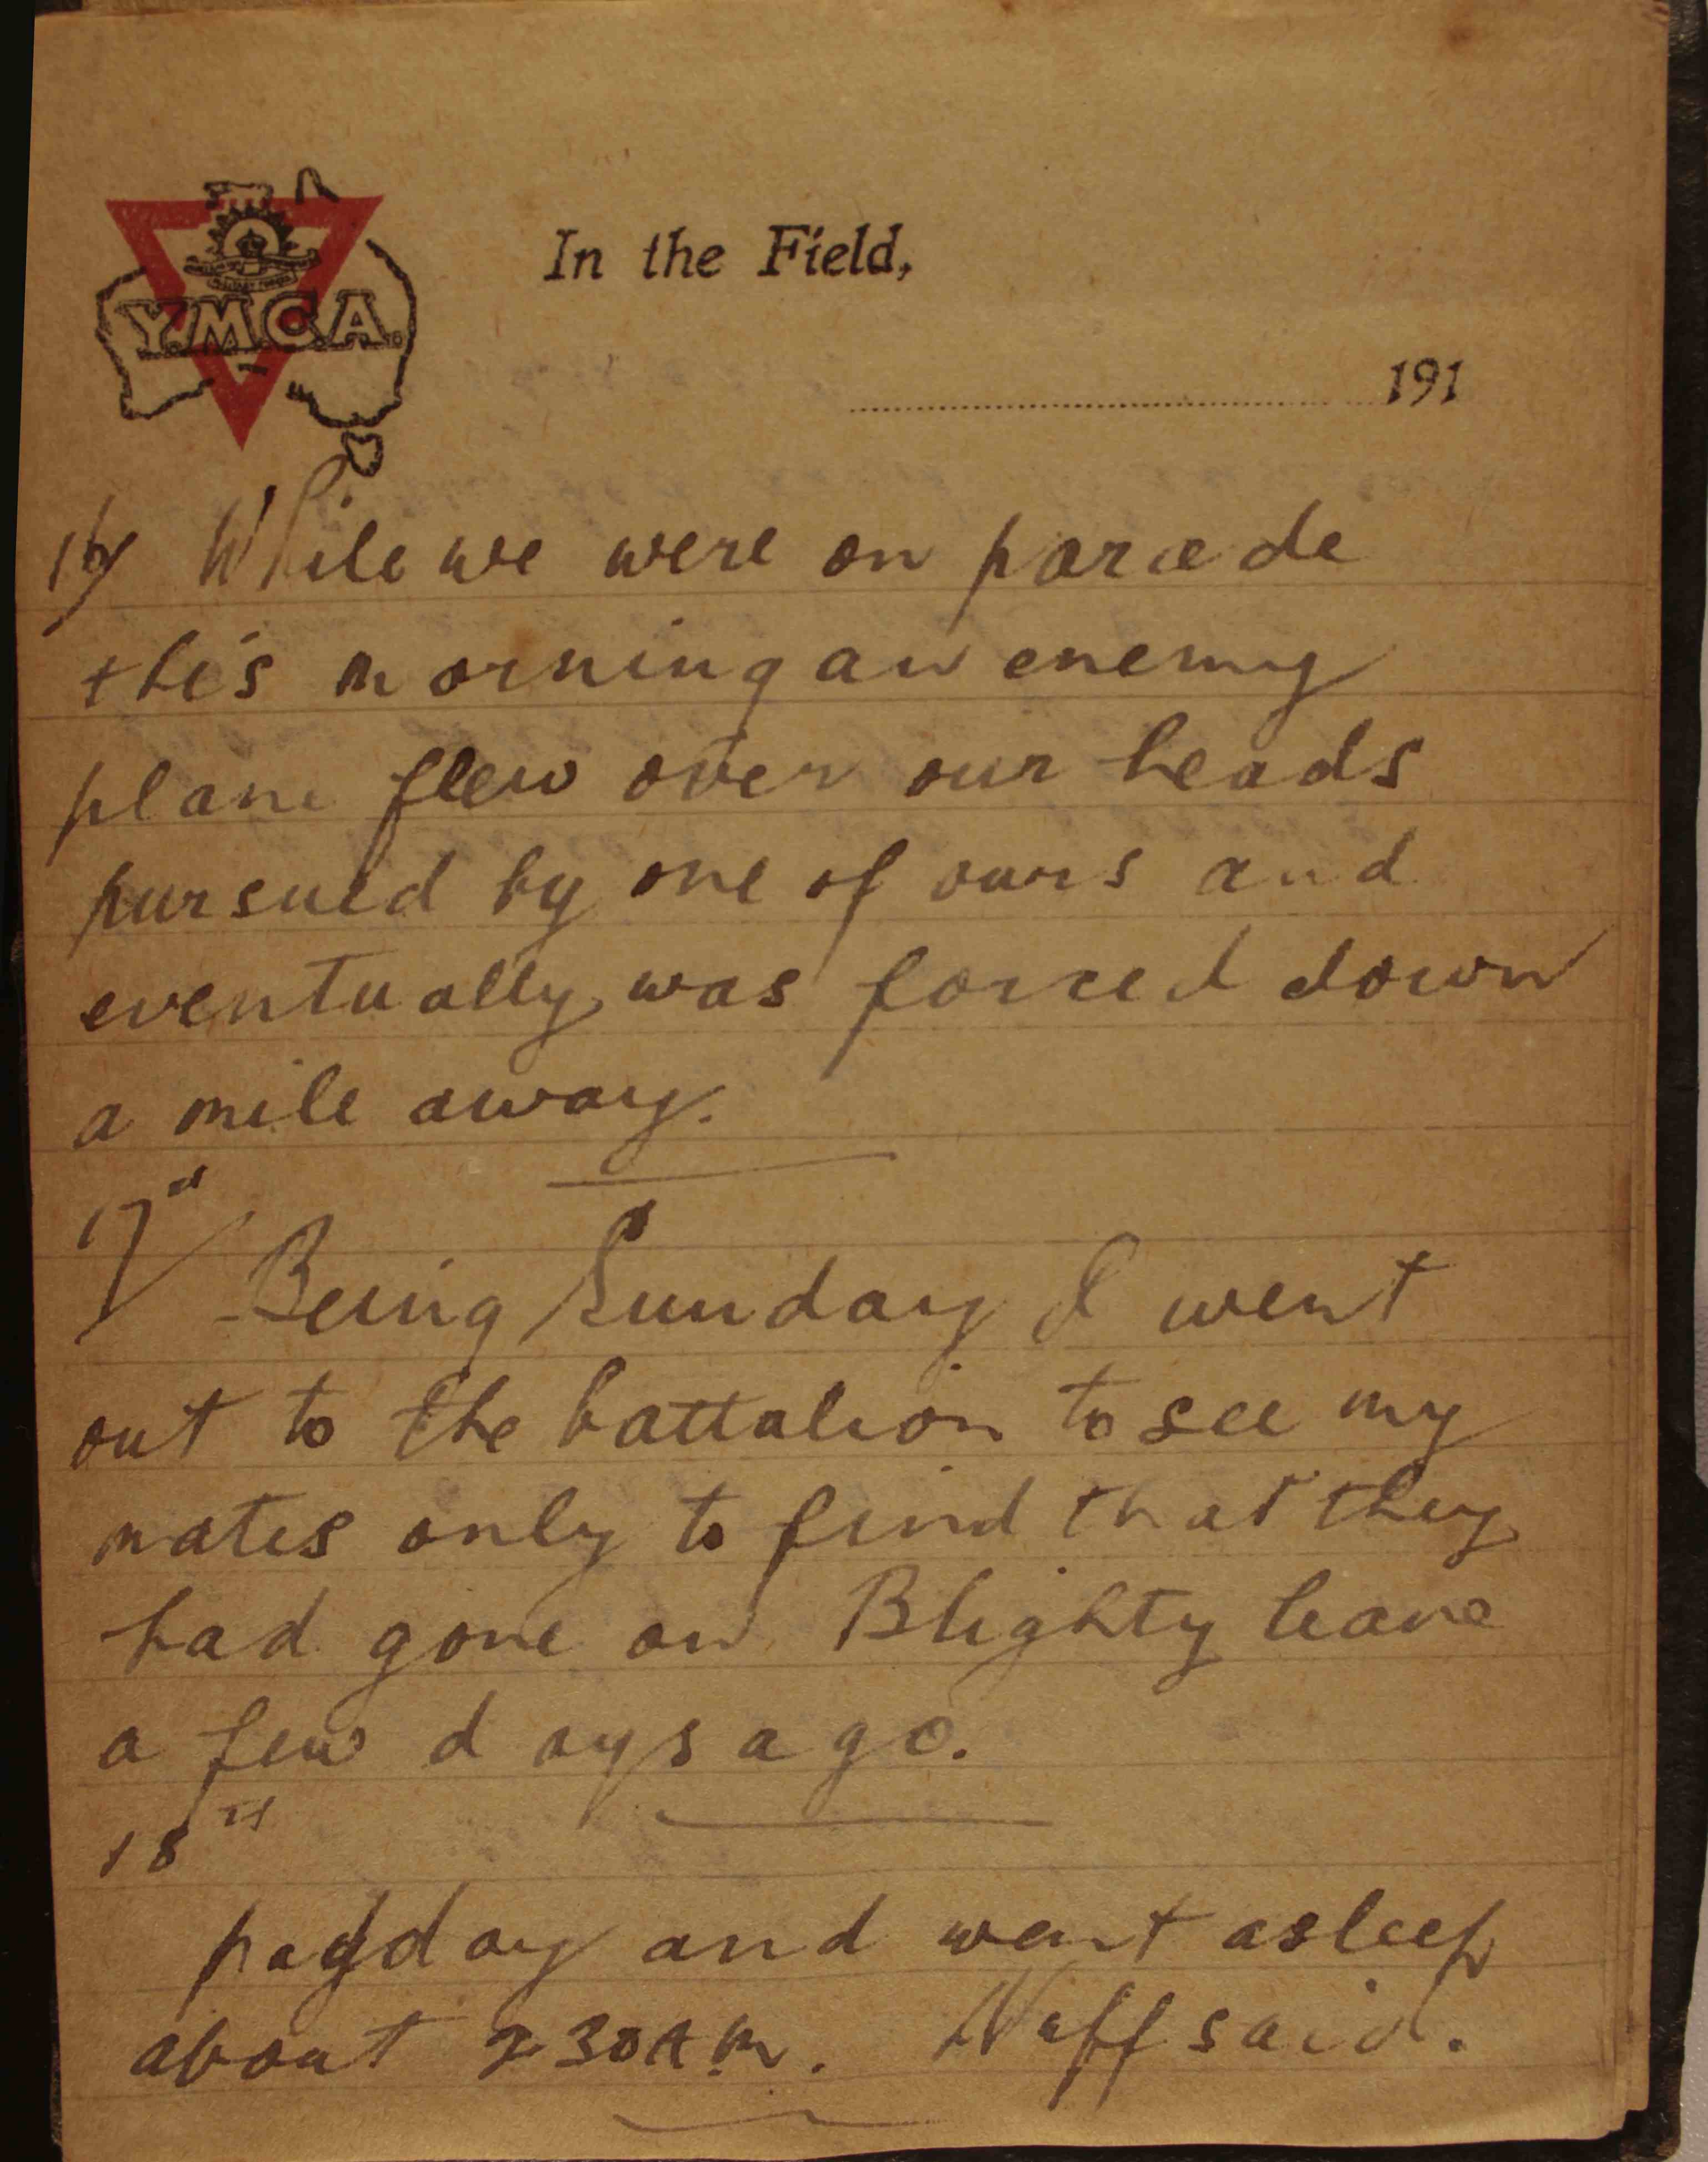 Y.M.C.A.
In the Field,
191
16/ While we were on parade
this morning an enemy
plane flew over our heads
pursued by one of ours and
eventually was forced down
a mile away.
17th
Being Sunday I went
out to the battalion to see my
mates only to find that they
had gone on Blighty leave
a few days ago.
18th
payday and went asleep
about 2 30 A M. Nuff said.